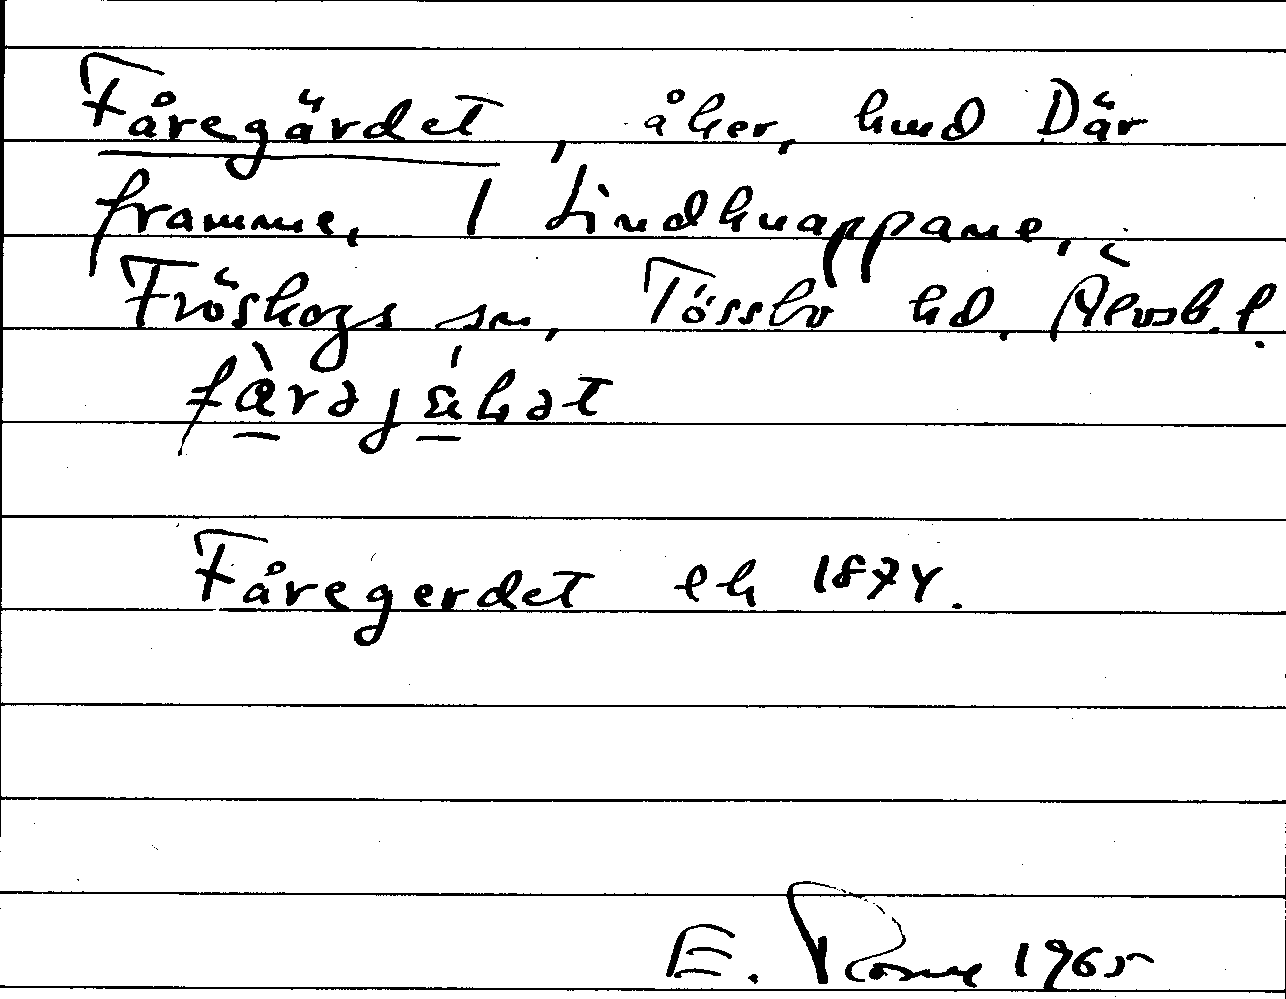 Fåregärdet, åker, hmd Där
framme, 1 Lindknappane, i
Fröskogs sn, Tössbo hd. Älvsb. l.
Fåregerdet ek 1874.
E. Rosme 1965